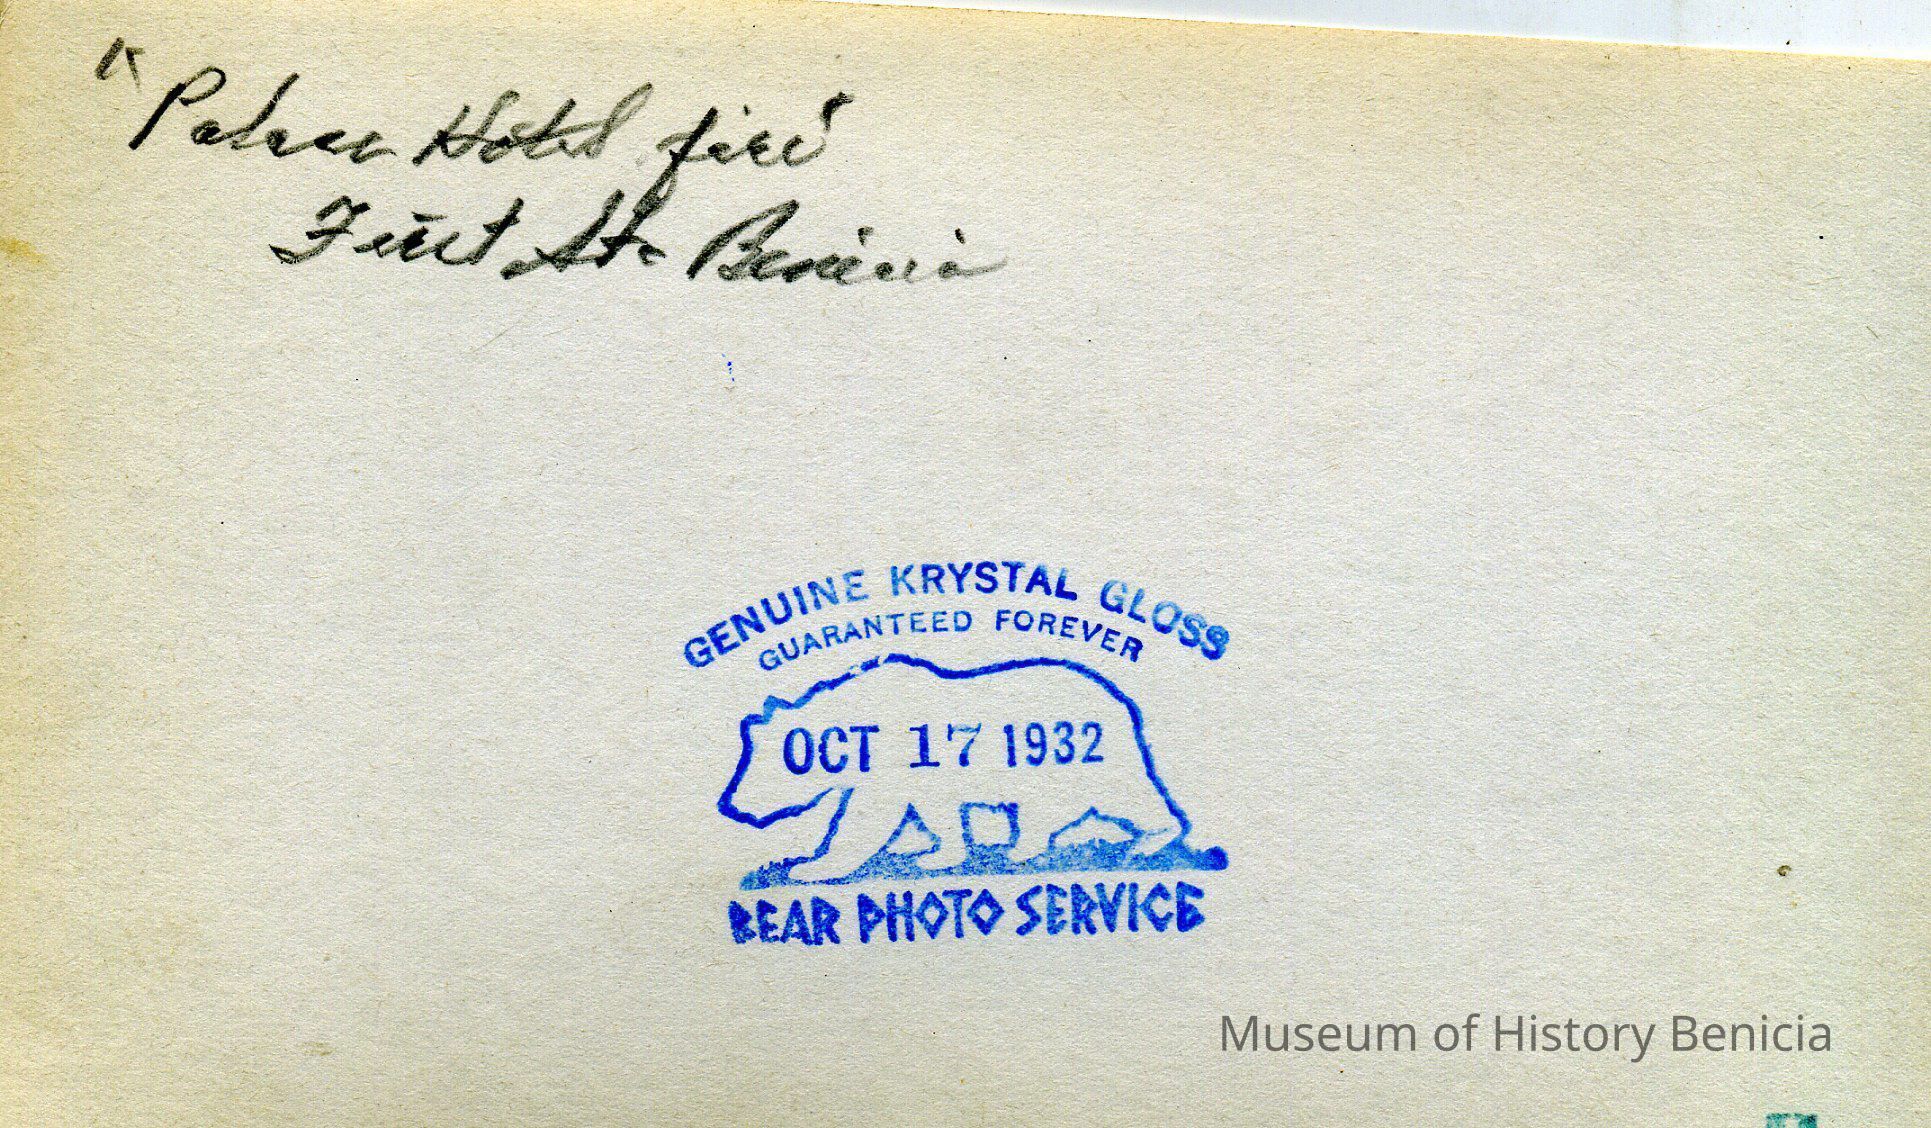 "Palace Hotel fire"
First St. Benicia
GENUINE KRYSTAL GLOSS
GUARANTEED FOREVER
OCT 17 1932
BEAR PHOTO SERVICE
Museum of History Benicia